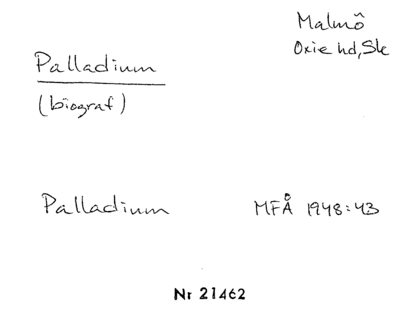 Malmö
Oxie hd, Sk
Palladium
(biograf)
Palladium MFÅ 1948:43
Nr 21462